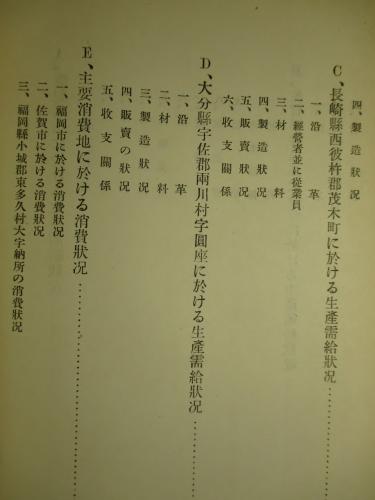 四、製造狀況
C、長崎縣西彼杵郡茂木町に於ける生產需給狀況
一、沿革
二、經營者並に從業員
三、材料
四、製造狀況
五、販賣狀況
六、收支關係
D、大分縣宇佐郡兩川村字圓座に於ける生產需給狀況
一、沿革
二、材料
三、製造狀況
四、販賣の狀況
五、收支關係
E、主要消費地に於ける消費狀況
一、福岡市に於ける消費狀況
二、佐賀市に於ける消費狀況
三、福岡縣小城郡東多久村大字納所の消費狀況